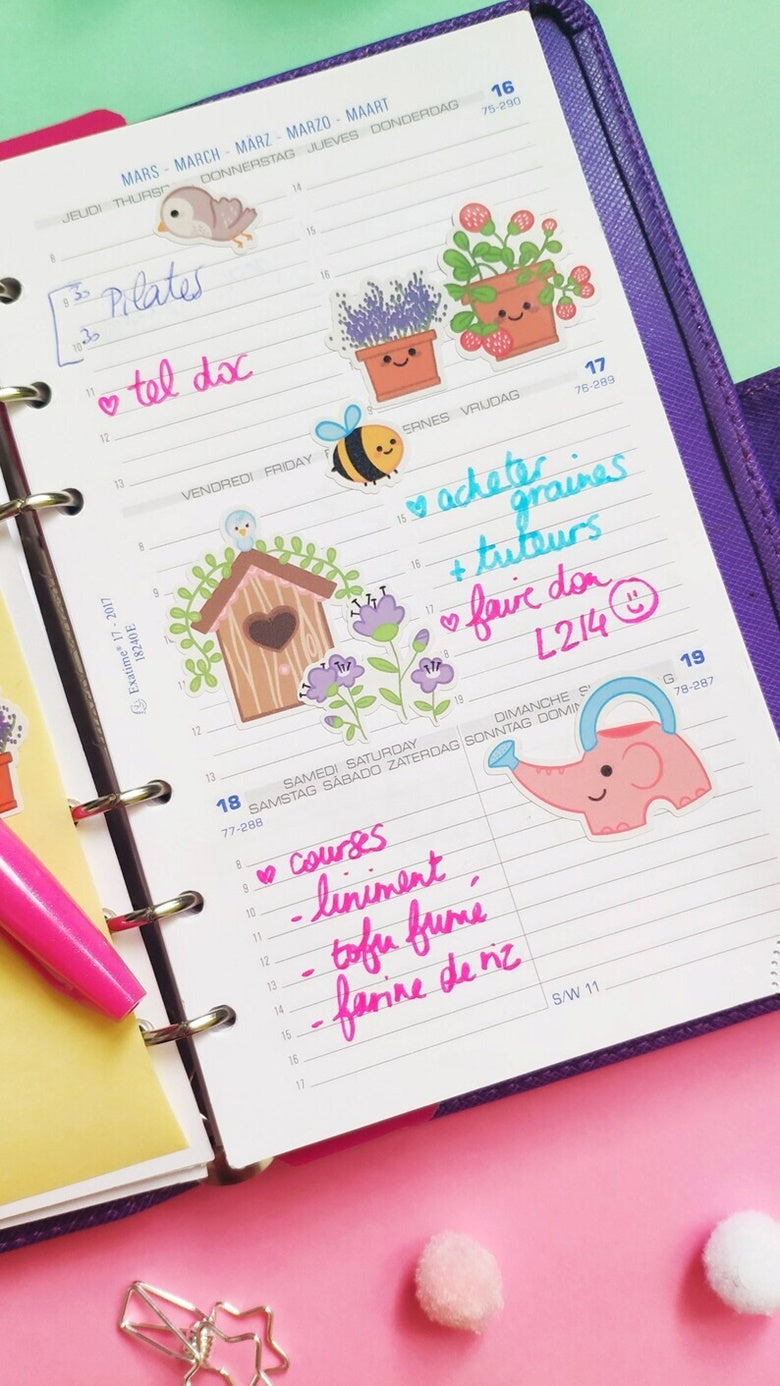 MARS - MARCH - MÄRZ - MARZO - MAART
16
75-290
JEUDI THURS DONNERSTAG JUEVES DONDERDAG
8
9 30 Pilates
10 30
11
♡ tel doc
12
13
14
15
16
17
76-289
VENDREDI FRIDAY ERNES VRIJDAG
8
9
11
12
13
♡ acheter
graines
15
+ tuteurs
16
♡ faire don
17
L214 ☺
18
19
Exatime® 17 - 2017
18240E
SAMEDI SATURDAY
SAMSTAG SÁBADO ZATERDAG
18
77-288
8
♡ courses
9
- liniment
10
11
- tofu fumé
12
13
- farine de riz
14
15
16
17
DIMANCHE S G
SONNTAG DOMIN
19
78-287
S/W 11